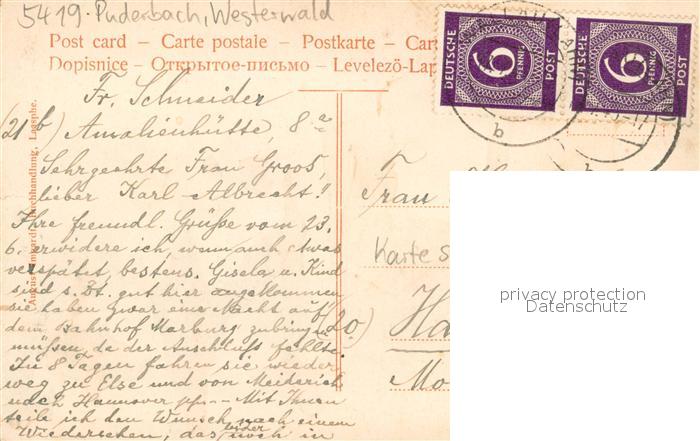 5419. Puderbach, Westerwald
Post card – Carte postale – Postkarte – Car
Dopisnice – Открытое-письмо – Levelezö-Lap
DEUTSCHE 6 PFENNIG POST
DEUTSCHE 6 PFENNIG POST
b
Fr. Schneider
(21b) Amalienhütte, 8
Sehrgeehrte Frau Groos,
lieber Karl-Albrecht!
Ihre freundl. Grüße vom 23.
6. erwidere ich, wenn auch etwas
verspätet, bestens. Gisela u. Kind
sind z. Zt. gut hier angekommen
sie haben zwar eine Nacht auf
dem Bahnhof Marburg zubringen
müssen, da der Anschluß fehlte.
In 8 Tagen fahren sie wieder
weg zu Else und von Meiderich
nach Hannover pp. – Mit Ihnen
teile ich den Wunsch nach einem
Wiedersehen, das leider noch in
Frau
Karte s
(20) Ha
Mo
Buchhandlung, Laasphe.
privacy protection
Datenschutz